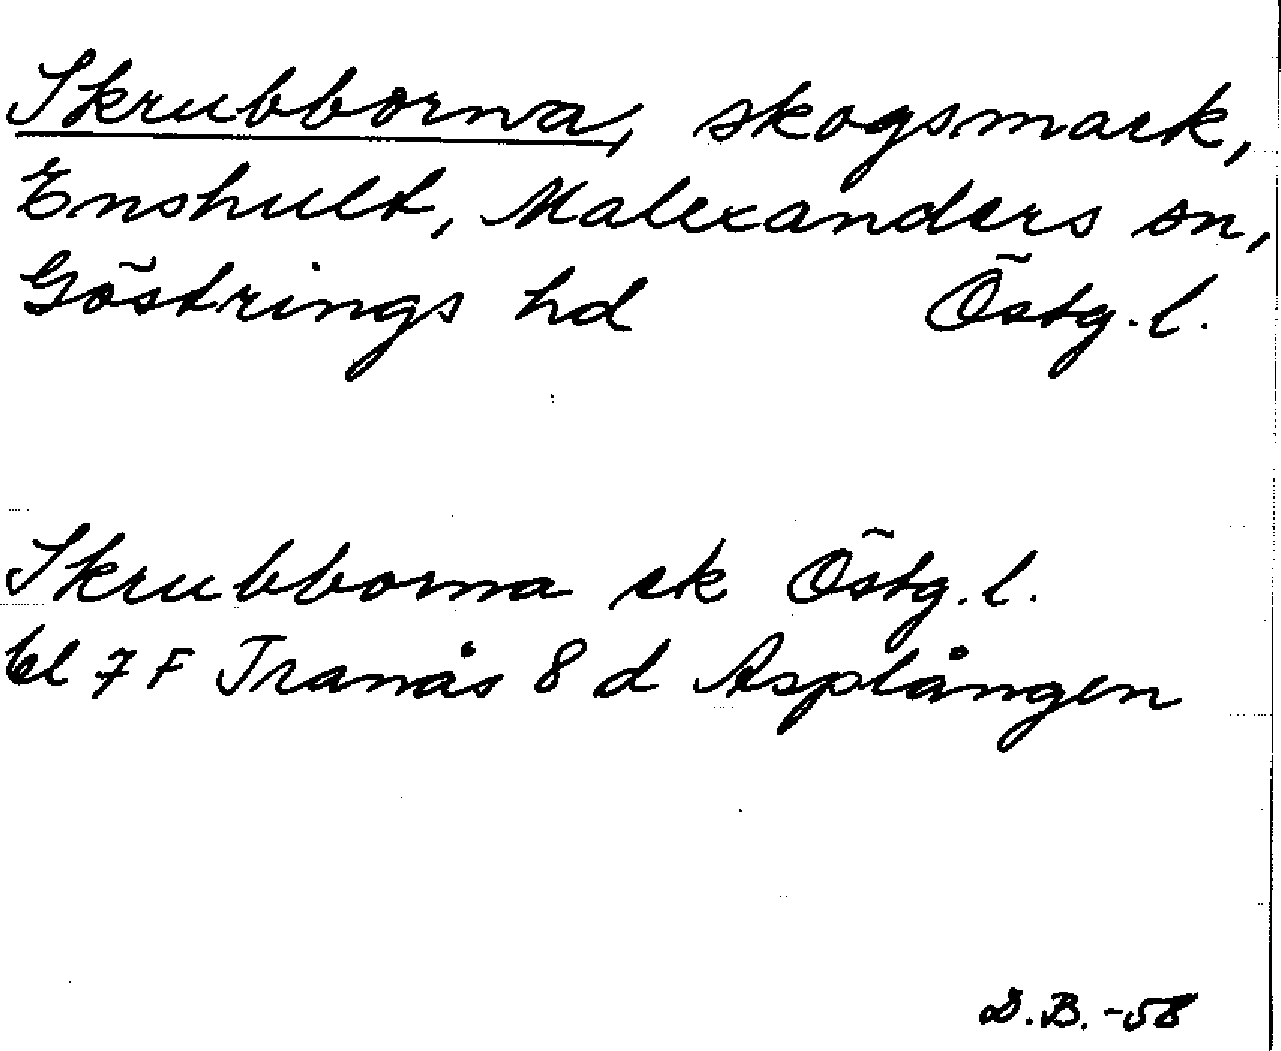 Skrubborna, skogsmark,
Enshult, Malexanders sn,
Göstrings hd Östg. l.
Skrubborna ek Östg. l.
bl 7 F Tranås 8 d Asplången
D.B. -58